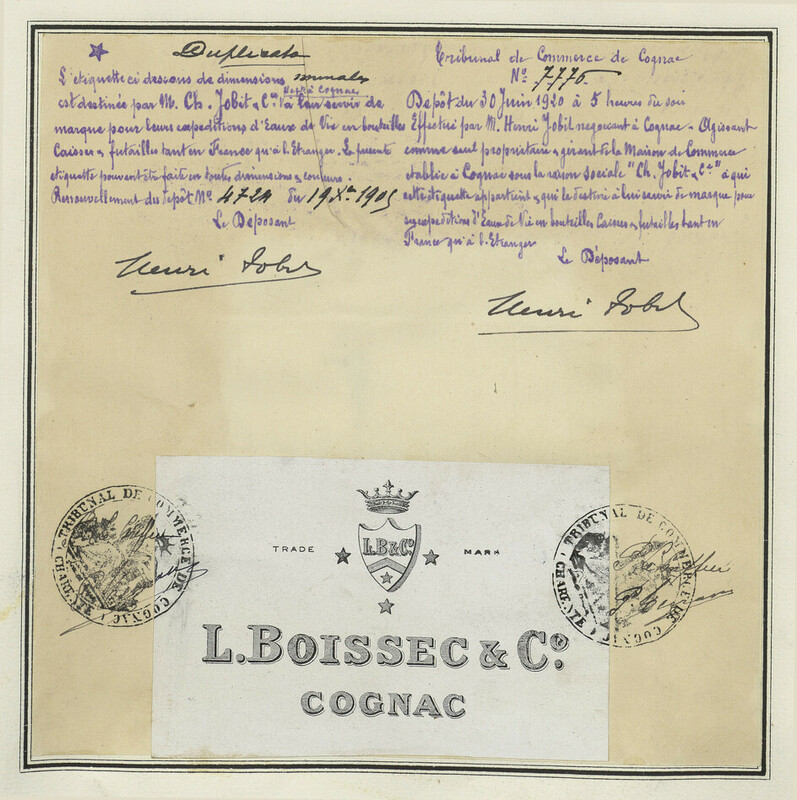 Duplicata
L'étiquette ci dessous de dimensions normales
Negt à Cognac
est destinée par M. Ch. Jobit & Cie à leur servir de
marque pour leurs expéditions d'Eaux de Vie en bouteilles
Caisses & futailles tant en France qu'à l'Etranger. La présente
étiquette pouvant être fait en toutes dimensions & couleurs.
Renouvellement du dépôt No 4724 du 19 Xbre 1905
Le Déposant
Henri Jobit
Tribunal de Commerce de Cognac
No 7776
Dépôt du 30 Juin 1920 à 5 heures du soir
Effectué par M. Henri Jobit négociant à Cognac - Agissant
comme seul propriétaire & gérant de la Maison de Commerce
établie à Cognac sous la raison sociale "Ch. Jobit & Cie" à qui
cette étiquette appartient & qui le destine à lui servir de marque pour
ses expéditions d'Eaux de Vie en bouteilles Caisses & futailles tant en
France qu'à l'Etranger
Le Déposant
Henri Jobit
TRIBUNAL DE COMMERCE DE COGNAC
(CHARENTE)
TRADE MARK
L.B&Co
L. BOISSEC & Co.
COGNAC
TRIBUNAL DE COMMERCE DE COGNAC
(CHARENTE)